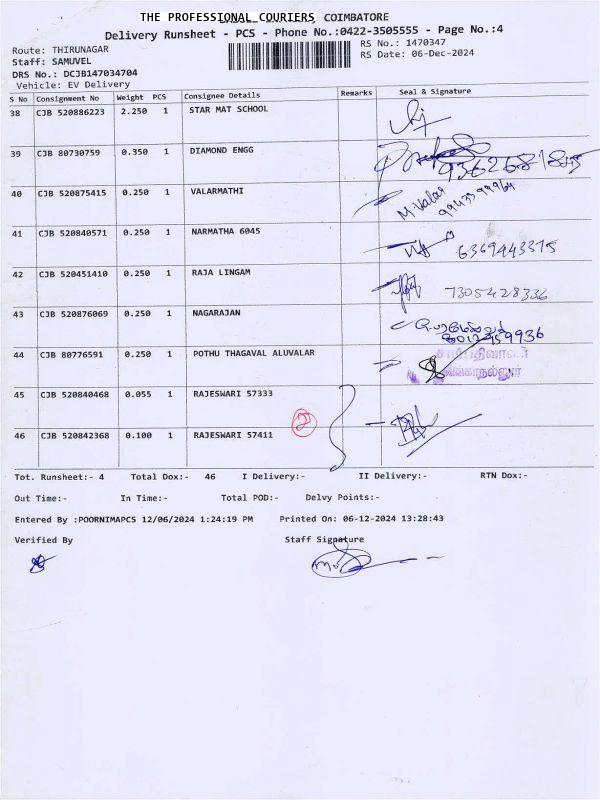 THE PROFESSIONAL COURIERS COIMBATORE
Delivery Runsheet - PCS - Phone No.:0422-3505555 - Page No.:4
Route: THIRUNAGAR
RS No.: 1470347
Staff: SAMUVEL
RS Date: 06-Dec-2024
DRS No.: DCJB147034704
Vehicle: EV Delivery
S No Consignment No Weight PCS Consignee Details Remarks Seal & Signature
38 CJB 520886223 2.250 1 STAR MAT SCHOOL
39 CJB 80730759 0.350 1 DIAMOND ENGG
40 CJB 520875415 0.250 1 VALARMATHI M. Valar
9943599964
41 CJB 520840571 0.250 1 NARMATHA 6045 6369443375
42 CJB 520451410 0.250 1 RAJA LINGAM 7305428336
43 CJB 520876069 0.250 1 NAGARAJAN
44 CJB 80776591 0.250 1 POTHU THAGAVAL ALUVALAR
45 CJB 520840468 0.055 1 RAJESWARI 57333
2
46 CJB 520842368 0.100 1 RAJESWARI 57411
Tot. Runsheet:- 4 Total Dox:- 46 I Delivery:- II Delivery:- RTN Dox:-
Out Time:- In Time:- Total POD:- Delvy Points:-
Entered By :POORNIMAPCS 12/06/2024 1:24:19 PM Printed On: 06-12-2024 13:28:43
Verified By Staff Signature